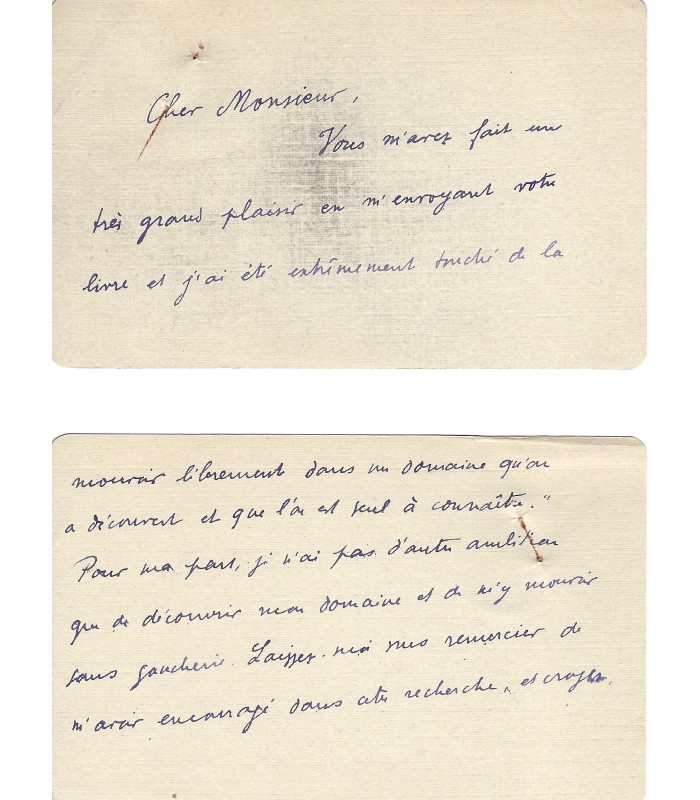 Cher Monsieur,
Vous m'avez fait un
très grand plaisir en m'envoyant votre
livre et j'ai été extrêmement touché de la
mourir librement dans un domaine qu'on
a découvert et que l'on est seul à connaître."
Pour ma part, je n'ai pas d'autre ambition
que de découvrir mon domaine et de m'y mouvoir
sans gaucherie. Laissez-moi vous remercier de
m'avoir encouragé dans cette recherche, et croyez,